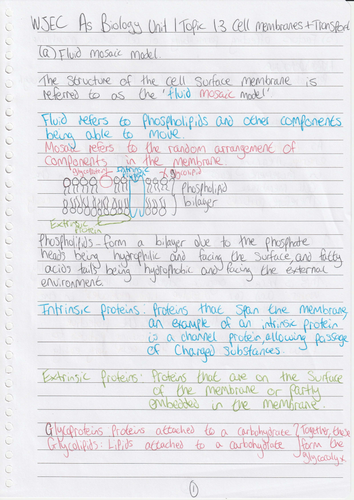 WJEC As Biology Unit 1 Topic 1.3 Cell membranes + Transport
(a) Fluid mosaic model.
The structure of the cell surface membrane is
referred to as the 'fluid mosaic model'
Fluid refers to phospholipids and other components
being able to move.
Mosaic refers to the random arrangement of
components in the membrane.
glycoprotein intrinsic protein glycolipid
phospholipid
bilayer
Extrinsic
protein
Phospholipids - form a bilayer due to the phosphate
heads being hydrophilic and facing the surface, and fatty
acids tails being hydrophobic and facing the external
environment.
Intrinsic proteins: Proteins that span the membrane,
an example of an intrinsic protein
is a channel protein, allowing passage
of charged substances.
Extrinsic proteins: Proteins that are on the surface
of the membrane or partly
embedded in the membrane.
Glycoproteins Proteins attached to a carbohydrate } Together, these
Glycolipids: Lipids attached to a carbohydrate } form the
glycocalyx
1